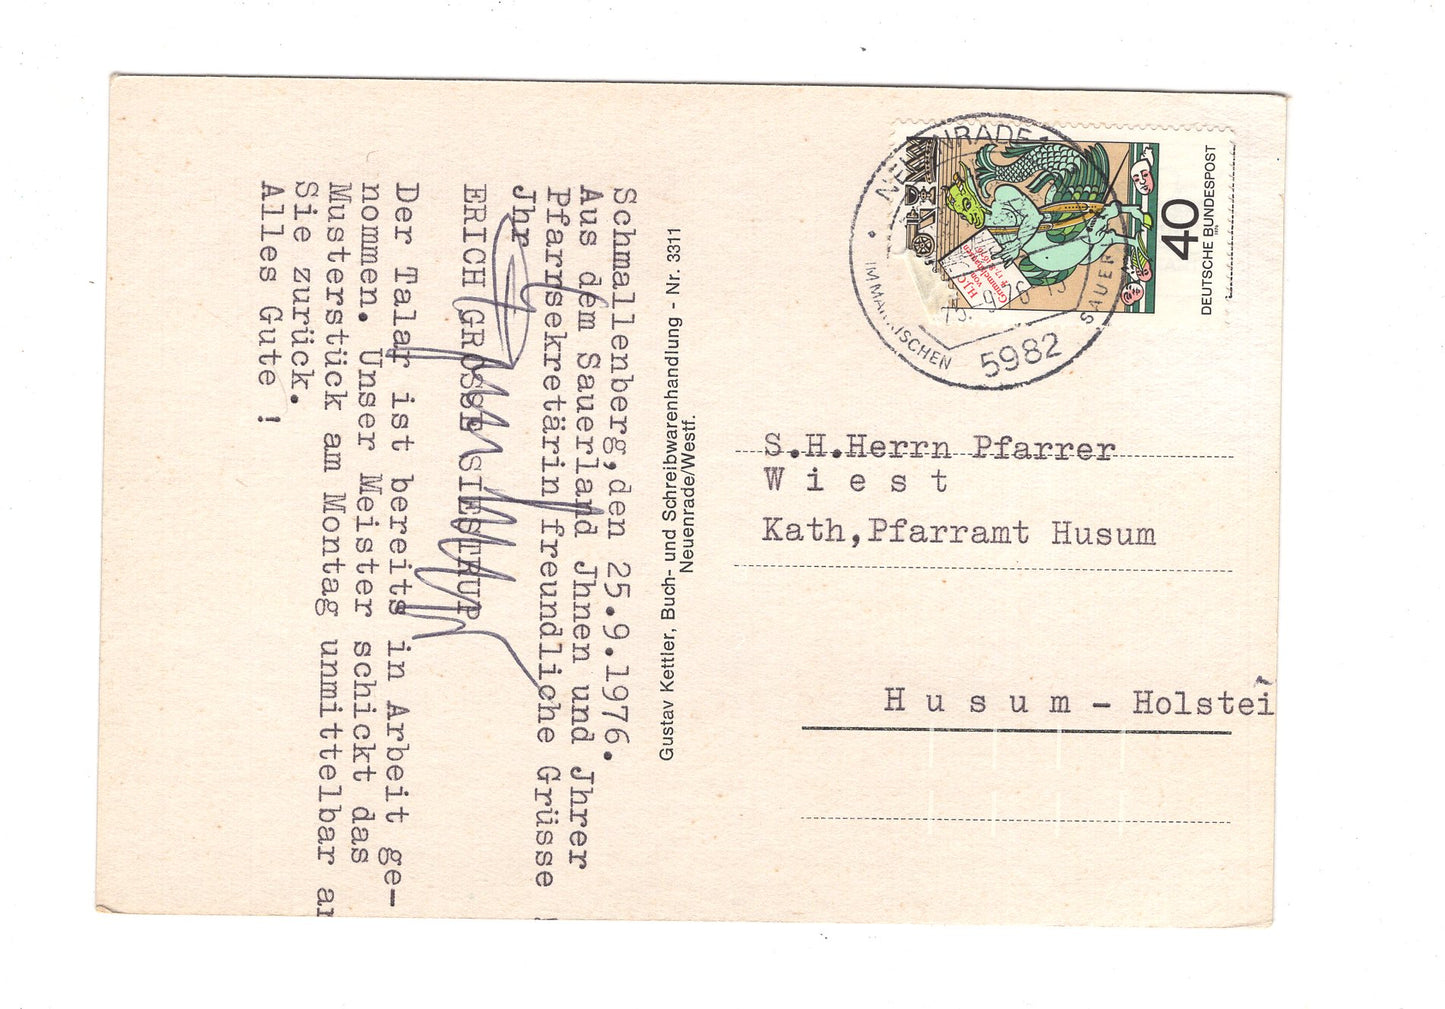 Schmallenberg,den 25.9.1976.
Aus dem Sauerland Jhnen und Jhrer
Pfarrsekretärin freundliche Grüsse
Jhr
ERICH GROSSE SIESTRUP
Der Talar ist bereits in Arbeit ge-
nommen. Unser Meister schickt das
Musterstück am Montag unmittelbar an
Sie zurück.
Alles Gute !
Gustav Kettler, Buch- und Schreibwarenhandlung - Nr. 3311
Neuenrade/Westf.
NEUENRADE 1
5982
IMMÄRKISCHEN
SAUER
40
DEUTSCHE BUNDESPOST
H.J.C.
von
Grimmelshausen
S.H.Herrn Pfarrer
W i e s t
Kath,Pfarramt Husum
H u s u m - Holstei